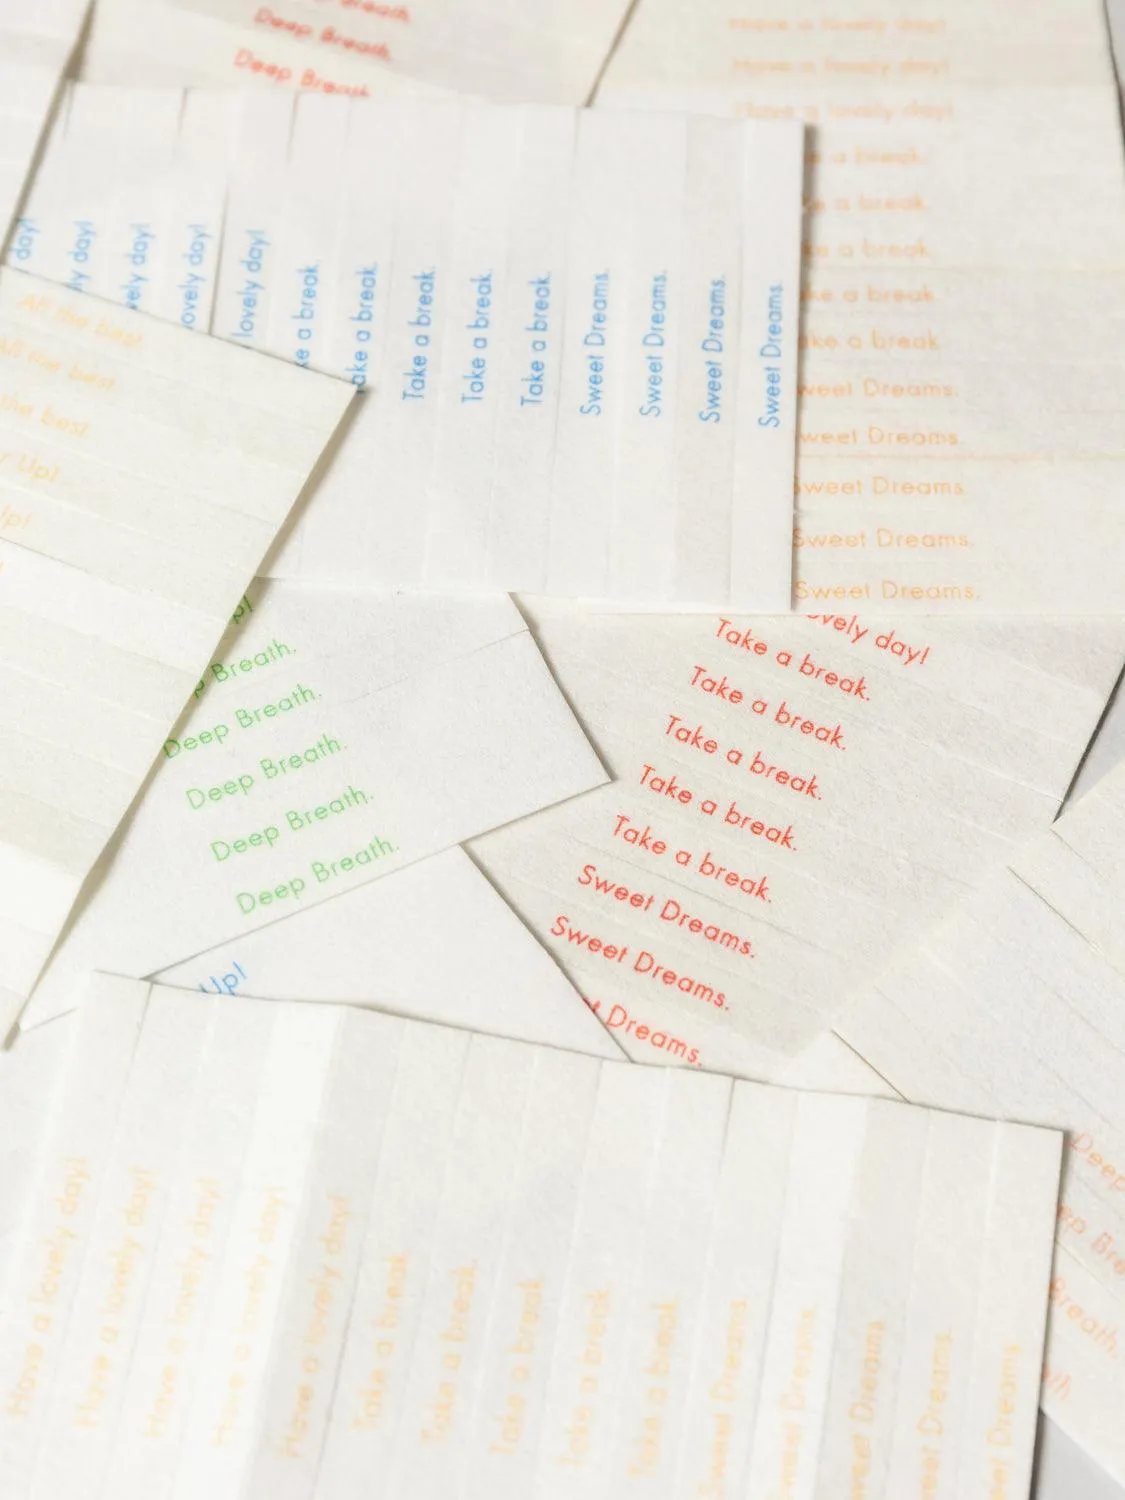 Breath.
Deep Breath.
Deep Breath.
Have a lovely day!
Have a lovely day!
Have a lovely day!
a break.
a break.
a break.
ke a break.
ake a break.
weet Dreams.
weet Dreams.
Sweet Dreams.
Sweet Dreams.
Sweet Dreams.
day!
ly day!
vely day!
lovely day!
lovely day!
ke a break.
ake a break.
Take a break.
Take a break.
Take a break.
Sweet Dreams.
Sweet Dreams.
Sweet Dreams.
Sweet Dreams.
All the best
All the best
the best
r Up!
Up!
p!
p Breath.
Deep Breath.
Deep Breath.
Deep Breath.
Deep Breath.
Up!
ovely day!
Take a break.
Take a break.
Take a break.
Take a break.
Take a break.
Sweet Dreams.
Sweet Dreams.
t Dreams.
Have a lovely day!
Have a lovely day!
Have a lovely day!
Have a lovely day!
Have a lovely day!
Take a break.
Take a break.
Take a break.
Take a break.
Take a break.
Sweet Dreams.
Sweet Dreams.
Sweet Dreams.
eet Dreams.
eet Dreams.
Deep
ep Bre
Breath.